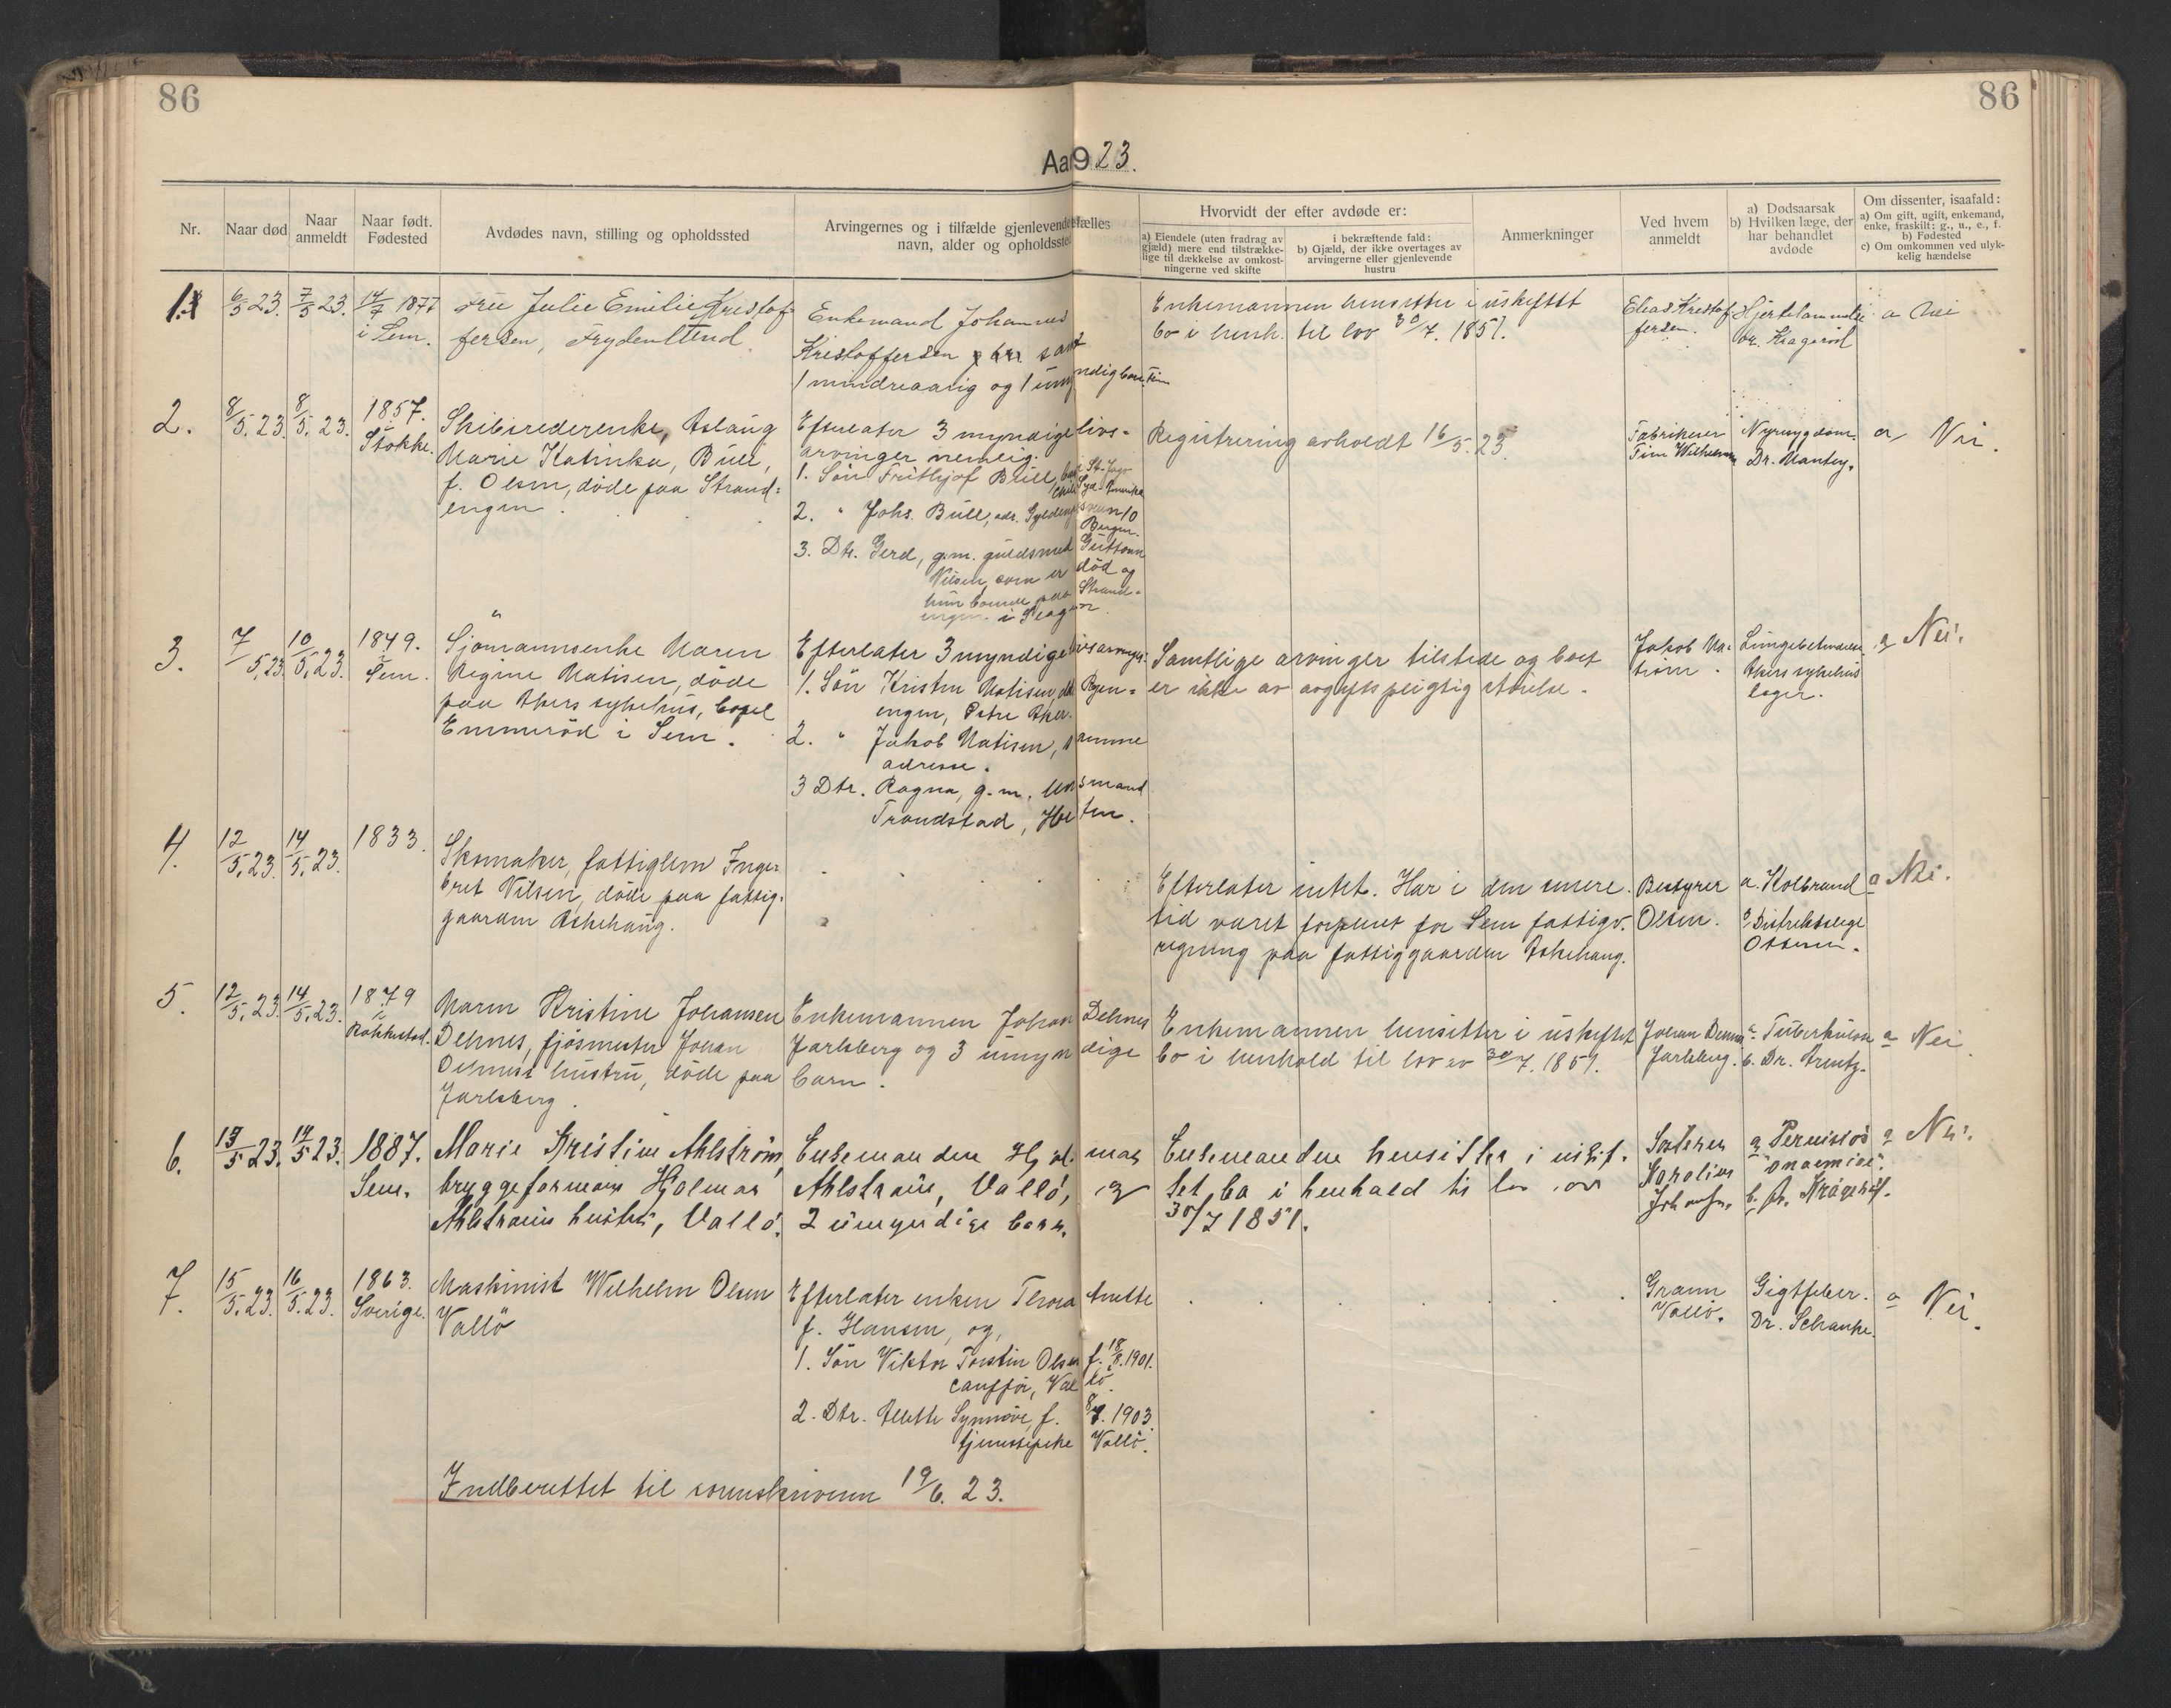 86
86
Aa
9 23.
Nr.
Naar død
Naar
anmeldt
Naar født.
Fødested
Avdødes navn, stilling og opholdssted
Arvingernes og i tilfælde gjenlevende
fælles
navn, alder og opholdssted
Hvorvidt der efter avdøde er:
a) Eiendele (uten fradrag av
gjæld) mere end tilstrække-
lige til dækkelse av omkost-
ningerne ved skifte
i bekræftende fald:
b) Gjæld, der ikke overtages av
arvingerne eller gjenlevende
hustru
Anmerkninger
Ved hvem
anmeldt
a) Dødsaarsak
b) Hvilken læge, der
har behandlet
avdøde
Om dissenter, isaafald:
a) Om gift, ugift, enkemand,
enke, fraskilt: g., u., e., f.
b) Fødested
c) Om omkommen ved ulyk-
kelig hændelse
1.
6/5 23.
7/5 23.
14/7 1877
i Sem.
Fru Julie Emilie Kristof-
fersen,
Enkemand Johannes
Kristoffersen samt
1 mindreaarig og 1 umyndig
Enkemannen hensitter i uskiftet
bo i henh. til lov 30/7. 1851.
Elias Kristof-
fersen.
Dr. Kragerød
a Nei
2.
8/5. 23.
8/5. 23.
1857.
Stokke.
Skibsrederenke, Aslaug
Marie Katinka, Bull,
f. Olsen, døde paa Strand-
engen.
Efterlater 3 myndige livs-
arvinger nemlig.
1. Søn Frithjof Bull, St. Jago
Chile Syd-Amerika
2. " Johs. Bull, adr. 10
Bergen.
3. Dtr. Gerd, g.m. guldsmed Guttorm
Nilsen, som er død og
hun boende paa Strand-
engen i Slagen.
Registrering avholdt 16/5. 23.
Fabrikeier
Nyresygdom.
Dr.
a Nei.
3.
7/5. 23
10/5. 23.
1849.
Sem.
Sjømannsenke Maren
Regine Matisen, døde
paa Akers sykehus, bopel
i Sem.
Efterlater 3 myndige livsarvinger.
1. Søn Kristen Matisen, Ryen-
engen, Østre Aker.
2. " Jakob Matisen, samme
adresse.
3 Dtr. Ragna, g.m. lensmand
Trondstad,
Samtlige arvinger tilstede og boet
er ikke av avgiftspligtig størelse.
Jakob Ma-
tisen.
Akers sykehus
læger.
a Nei.
4.
12/5. 23.
14/5. 23.
1833.
Skomaker, fattiglem Inge-
bret Nilsen, døde paa fattig-
gaarden Askehaug.
Efterlater intet. Har i den senere
tid været forpleiet for Sem fattigv.
regning paa fattiggaarden Askehaug.
Bestyrer
Olsen.
a. Kolbrand
b. Distriktslæge
a Nei.
5.
12/5. 23.
14/5. 23.
1879
i
Rakkestad.
Maren Kristine Johansen
Dehnes, fjøsmester Johan
Dehnes hustru, døde paa
Jarlsberg.
Enkemannen Johan Dehnes
Jarlsberg og 3 umyndige
barn.
Enkemannen hensitter i uskiftet
bo i henhold til lov av 30/7. 1851.
Johan Dehnes
Jarlsberg.
a. Tuberkulose
b. Dr. Arentz.
a Nei.
6.
13/5 23.
14/5 23.
1887.
Sem.
Marie Kristine Ahlstrøm,
bryggeformann Hjalmar
Ahlstrøms hustru, Vallø.
Enkemanden Hjalmar
Ahlstrøm, Vallø, og
2 umyndige barn.
Enkemanden hensitter i uskif-
tet bo i henhold til lov av
30/7 1851.
Søsteren
Karoline
a. Perniciøs
anæmi.
b. Dr. Kragerød.
a Nei.
7.
15/5. 23.
16/5. 23.
1863.
Sverige.
Maskinist Wilhelm Olsen
Vallö
Efterlater enken Thora Anette
f. Hansen, og,
1. Søn Viktor Torstein Olsen f. 18/8. 1901.
chauffør, Vallö.
2. Dtr. Synnøve, f. 8/7. 1903.
tjenestepike Vallö.
Gram
Vallö.
Gigtfeber.
Dr. Schanke.
a Nei.
Indberettet til sorenskriveren 19/6. 23.